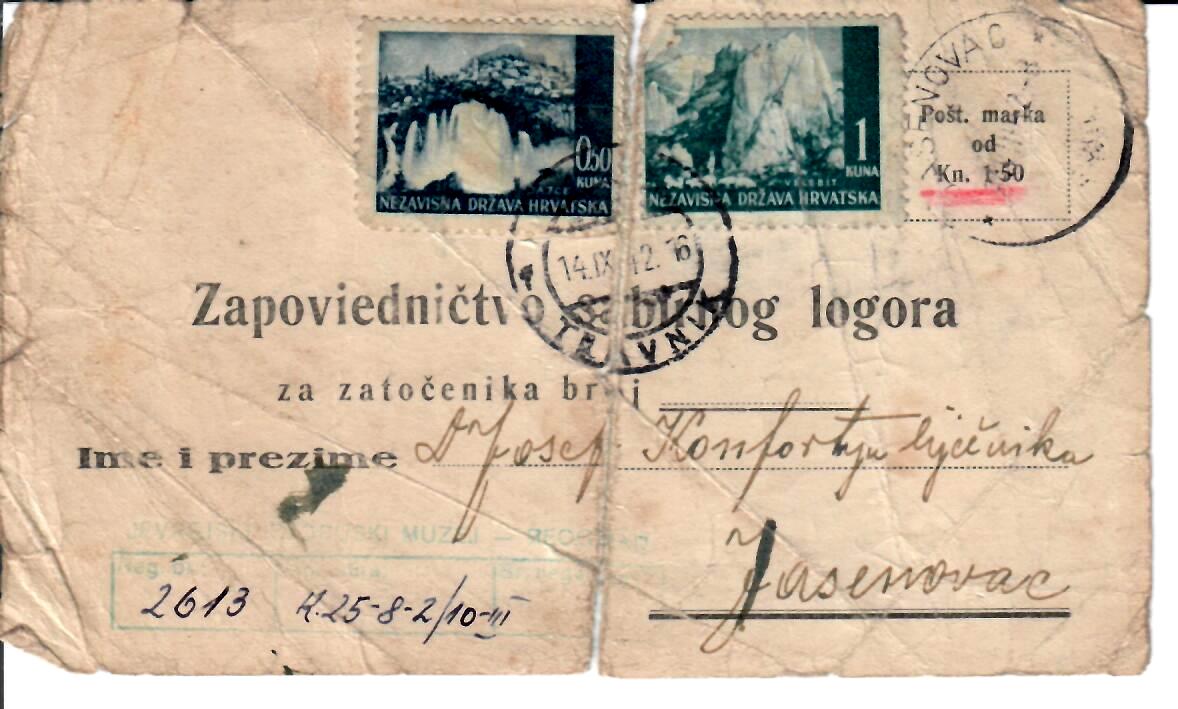 0,50
KUNA
JAJCE
NEZAVISNA DRŽAVA HRVATSKA
1
KUNA
VELEBIT
NEZAVISNA DRŽAVA HRVATSKA
JASENOVAC
Pošt. marka
od
Kn. 1·50
14.IX.42. 16
TRAVNIK
Zapovjedničtvo Sabirnog logora
za zatočenika broj
Ime i prezime Dr Josef Konfortyu liječnika
Jasenovac
JEVREJSKI MUZEJ — BEOGRAD
Reg. br.
2613 K.25-8-2/10-III